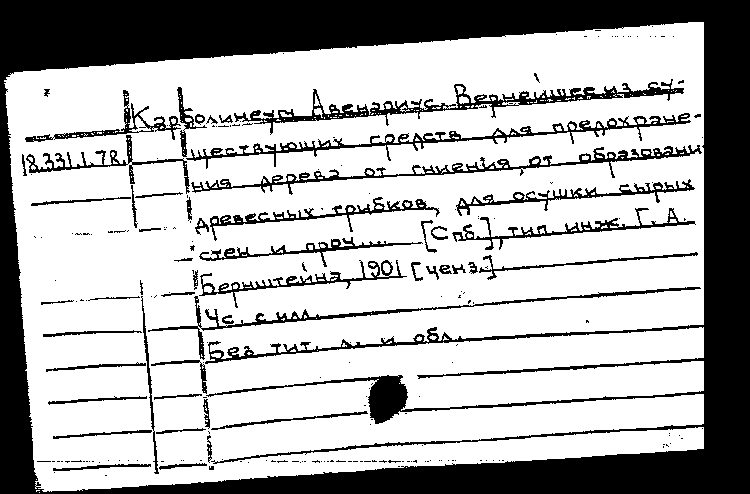 Карболинеум Авенариус. Вернейшее из су-
18.331.1.78. ществующих средств для предохране-
ния дерева от гниения, от образовани
древесных грибков, для осушки сырых
стен и проч.... [Спб.], тип. инж. Г. А.
Бернштейна, 1901 [ценз.]
4с. с илл.
Без тит. л. и обл.